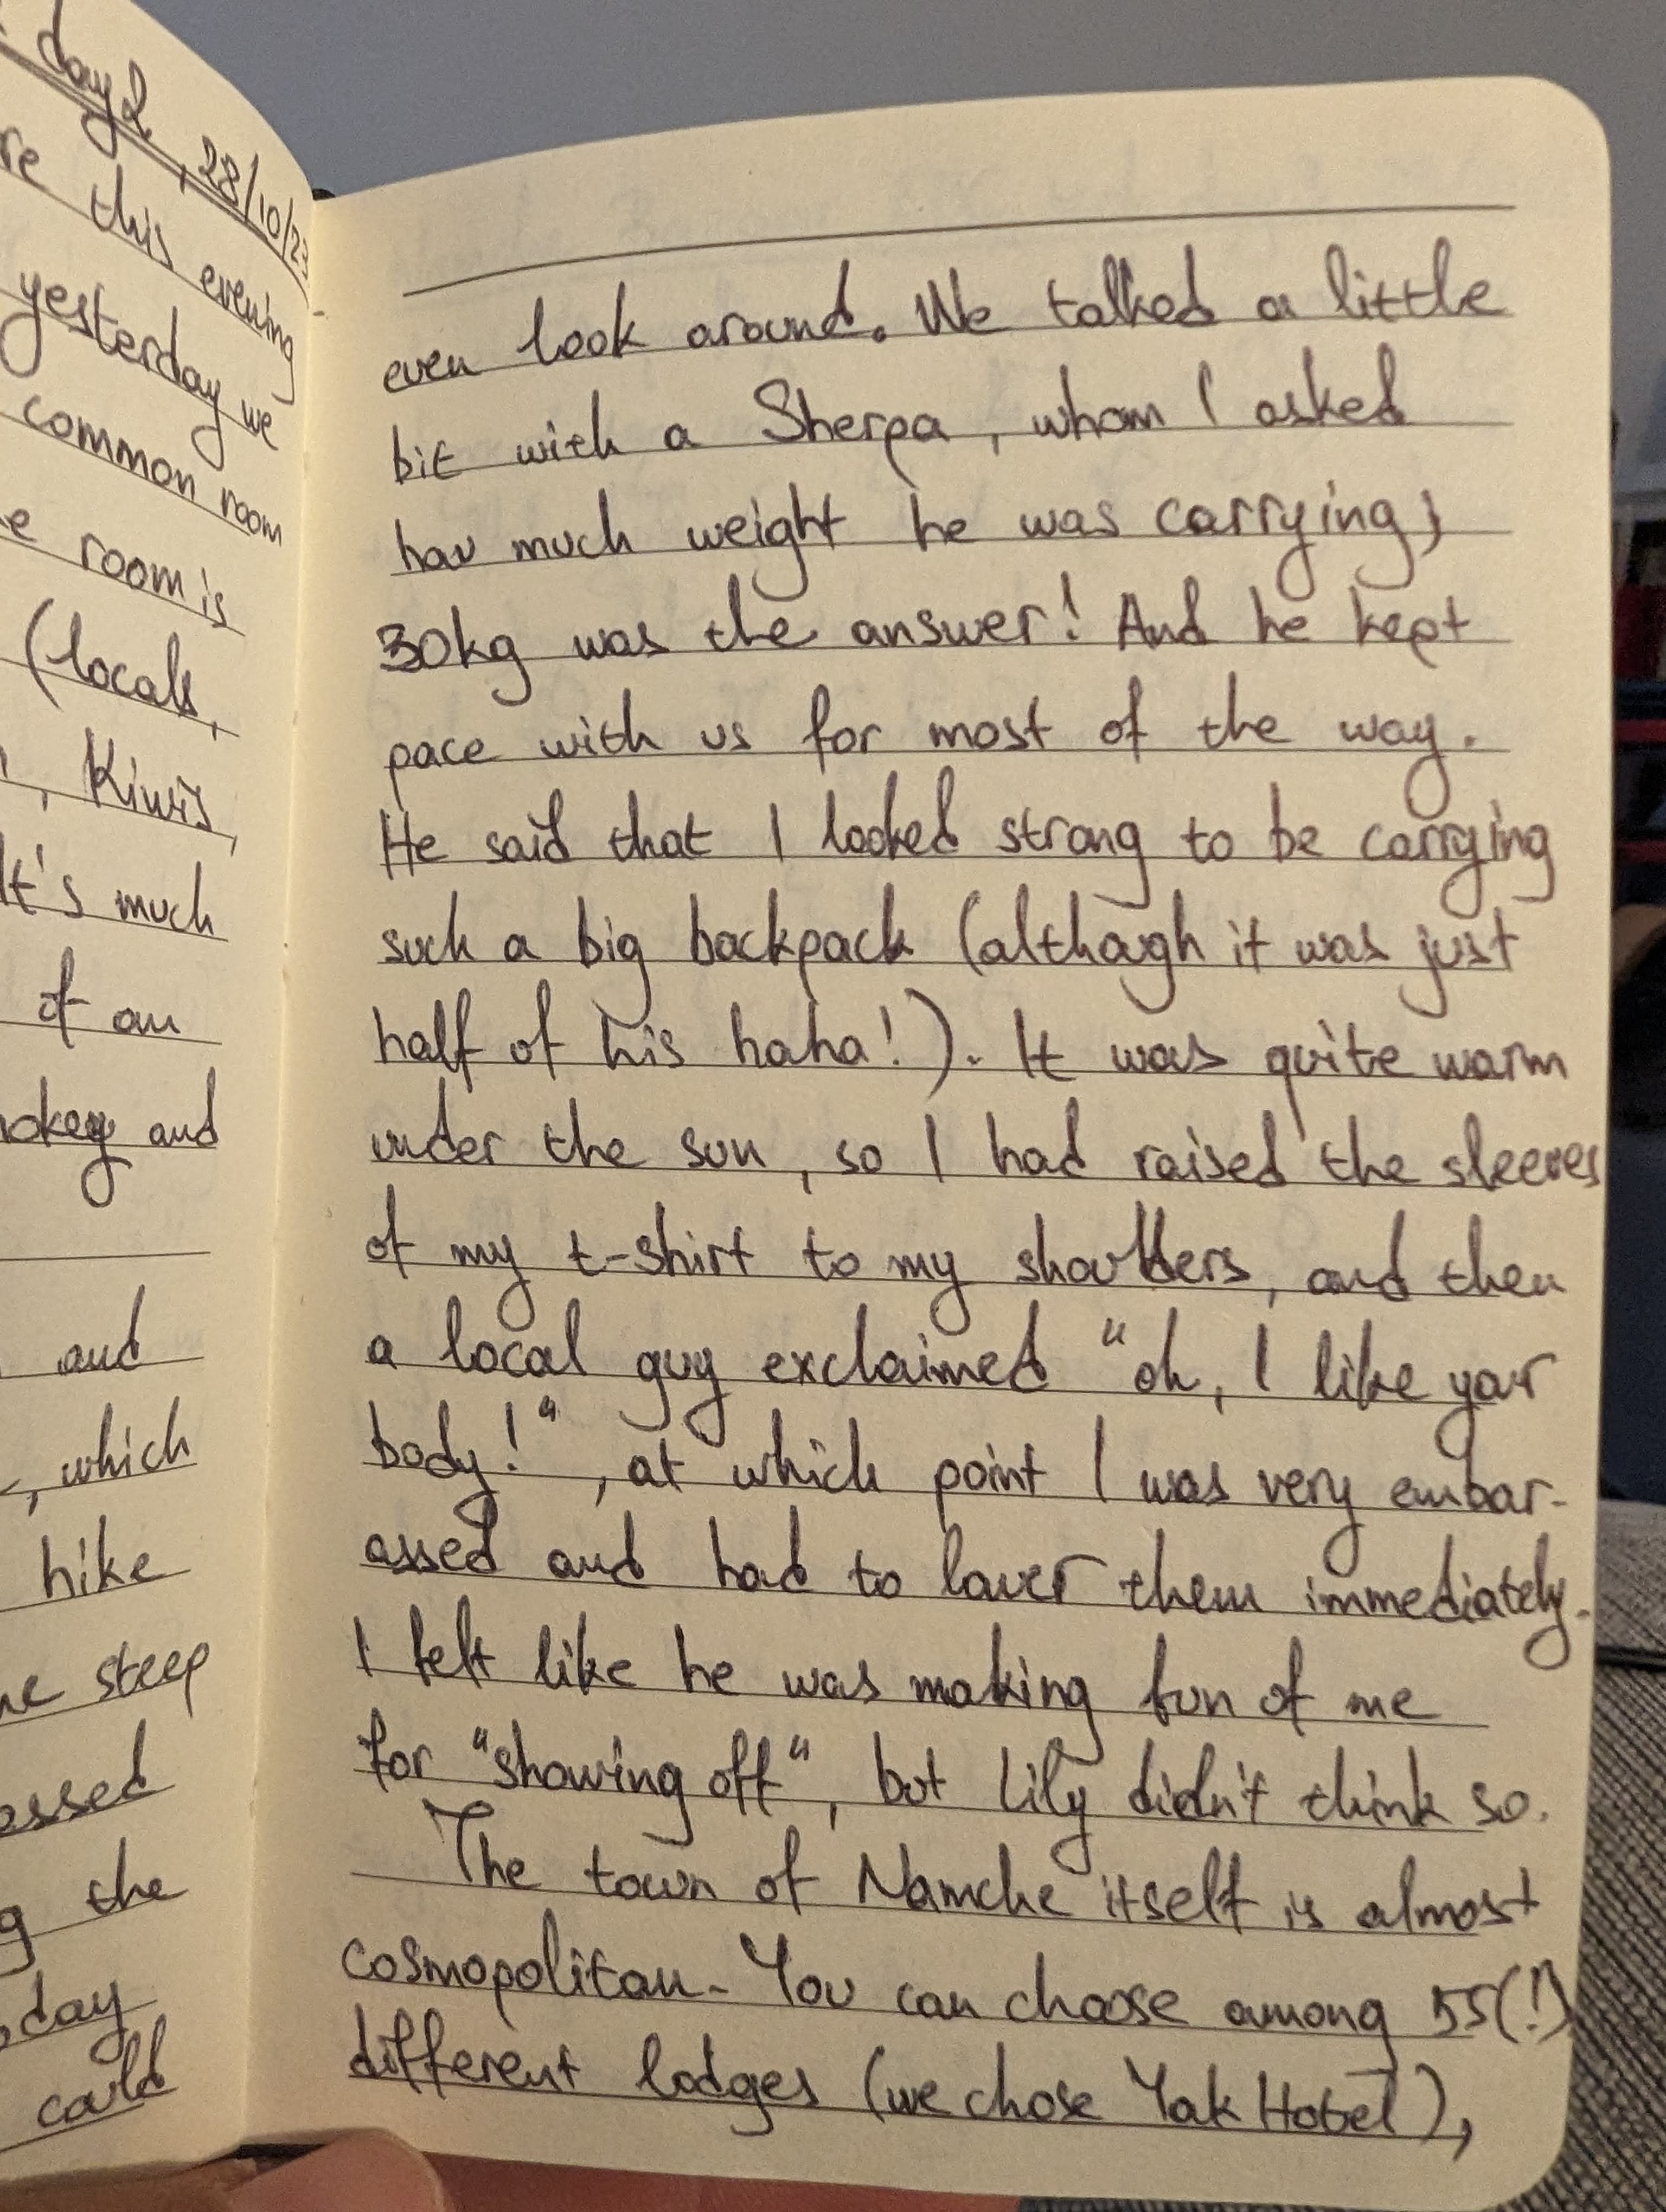 day 2, 28/10/23
re this evening
yesterday we
common room
e room is
(locals,
, Kiwis,
It's much
of an
okey and
and
, which
hike
ne steep
assed
g the
day
could
even look around. We talked a little
bit with a Sherpa, whom I asked
how much weight he was carrying;
30kg was the answer! And he kept
pace with us for most of the way.
He said that I looked strong to be carrying
such a big backpack (although it was just
half of his haha!). It was quite warm
under the sun, so I had raised the sleeves
of my t-shirt to my shoulders, and then
a local guy exclaimed "oh, I like your
body!", at which point I was very embar-
assed and had to lower them immediately.
I felt like he was making fun of me
for "showing off", but Lily didn't think so.
The town of Namche itself is almost
cosmopolitan. You can choose among 55(!)
different lodges (we chose Yak Hotel),